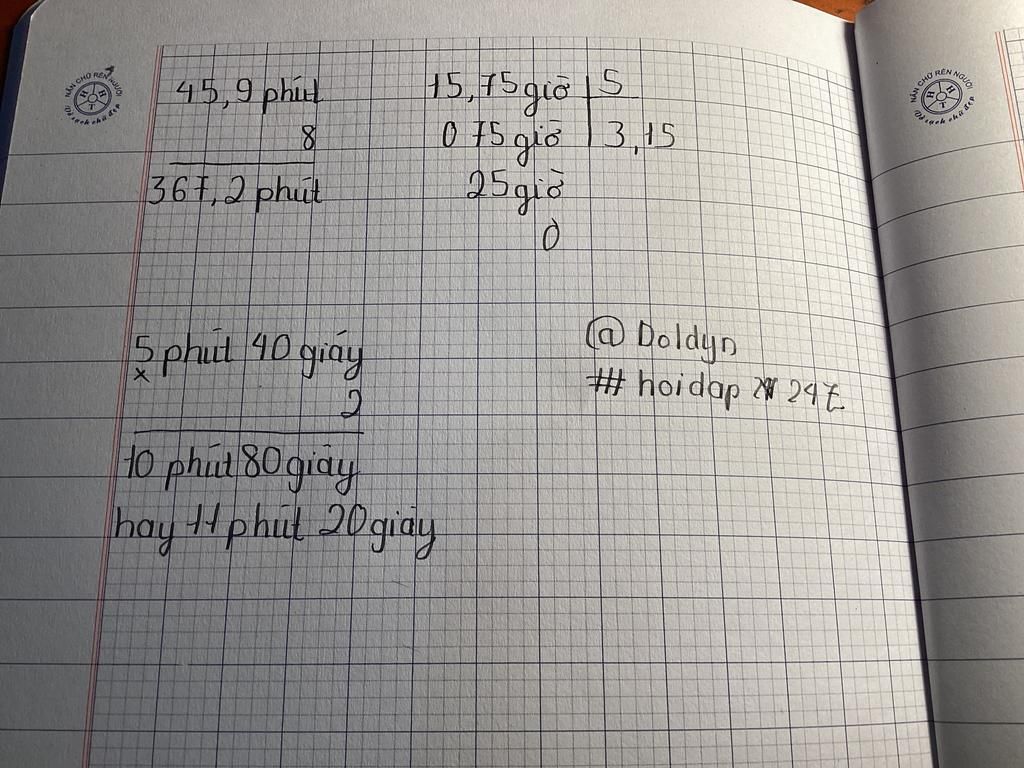 NẮN CHỮ RÈN NGƯỜI
H H T
Vở sạch chữ đẹp
45,9 phút
8
367,2 phút
15,75 giờ 5
0 75 giờ 3,15
25 giờ
0
5 phút 40 giây
x
2
10 phút 80 giây
hay 11 phút 20 giây
@ Doldyn
# hoidap 247
NẮN CHỮ RÈN NGƯỜI
H H T
Vở sạch chữ đẹp